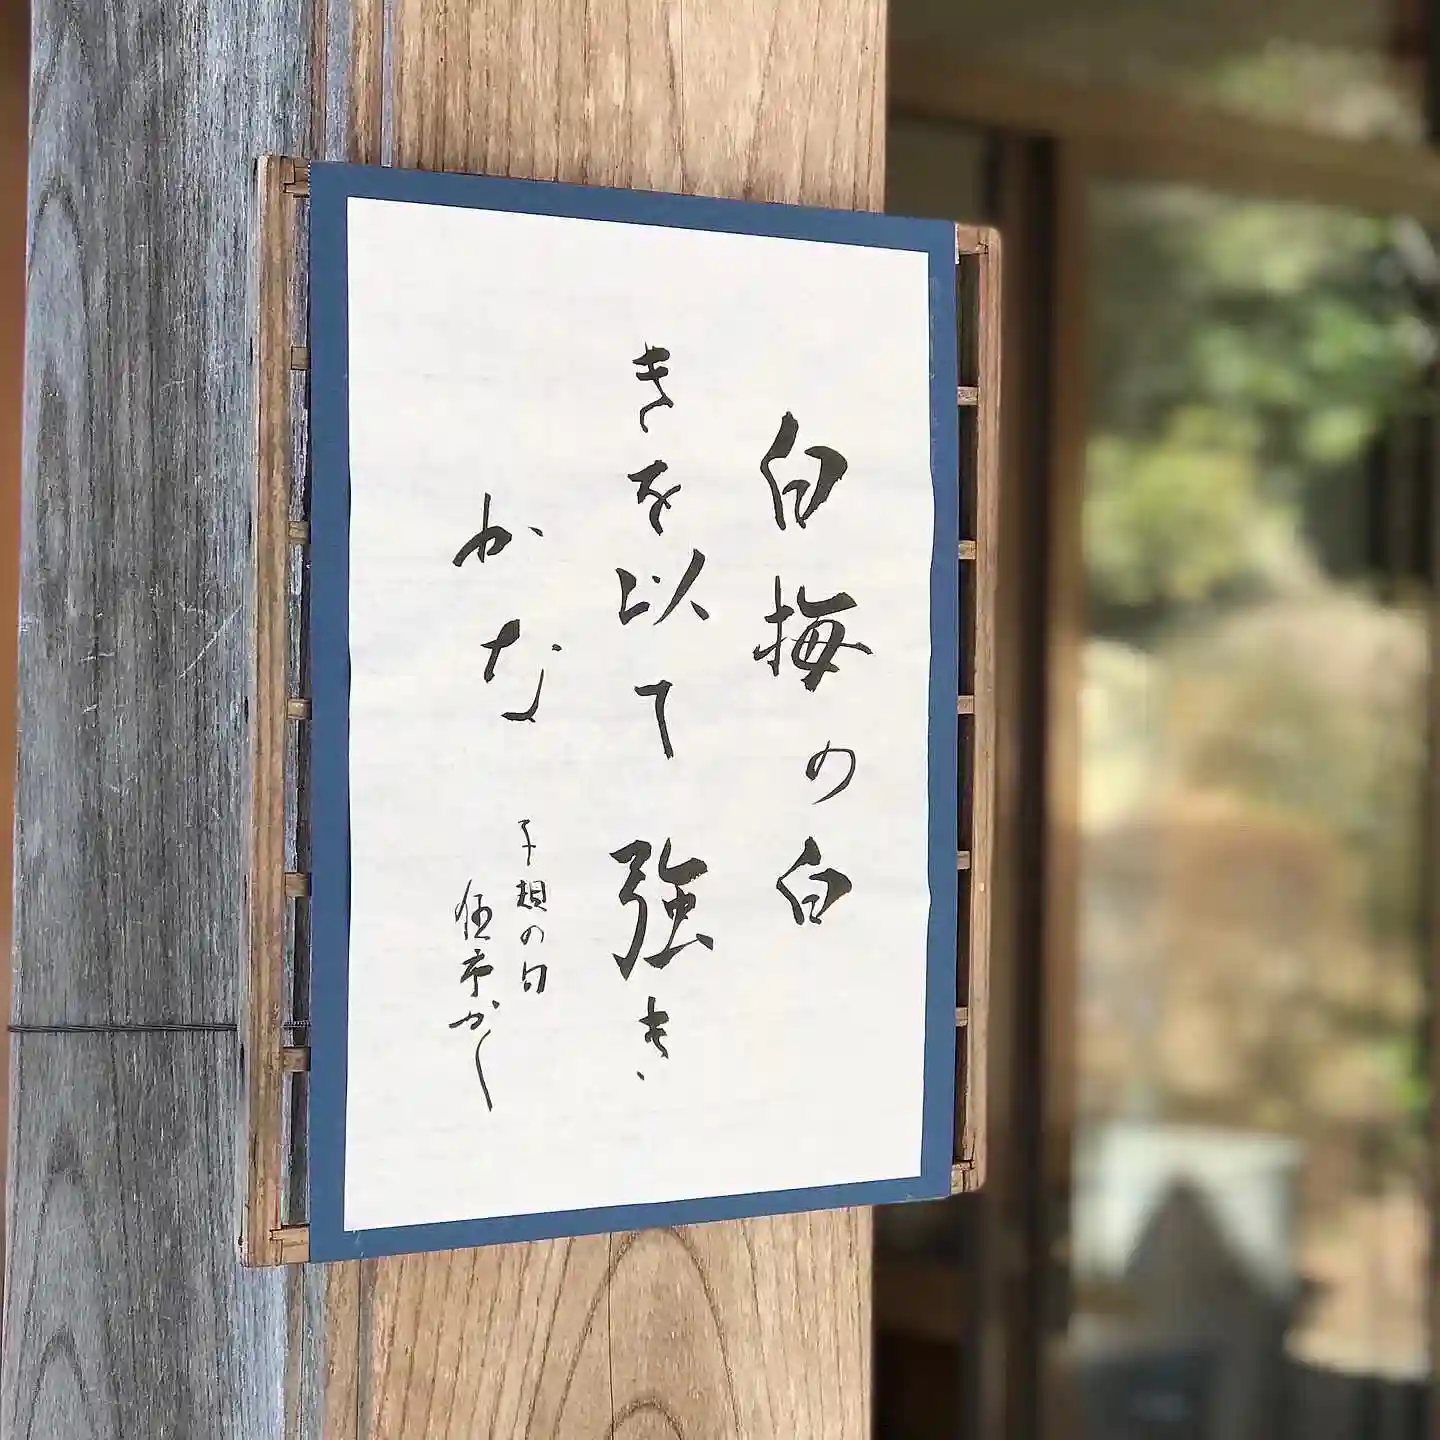 白梅の白
きを以て強き
かな
の句